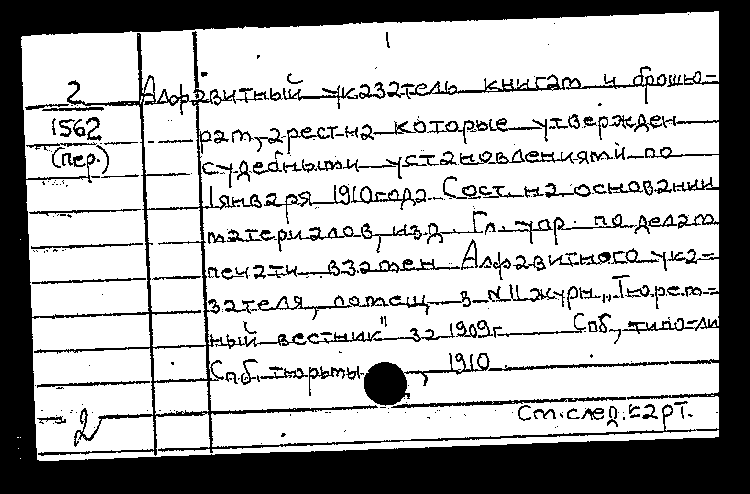 1
2 Алфавитный указатель книгам и брошю=
1562 рам, арест на которые утвержден
(пер.) судебными установлениями по
1 января 1910 года. Сост. на основании
материалов, изд. Гл. упр. по делам
печати взамен Алфавитного ука=
зателя, помещ. в №11 журн. „Тюрем=
ный вестник" за 1909г. Спб, типо-ли
Спб. тюрьмы, 1910
2 См. след. карт.